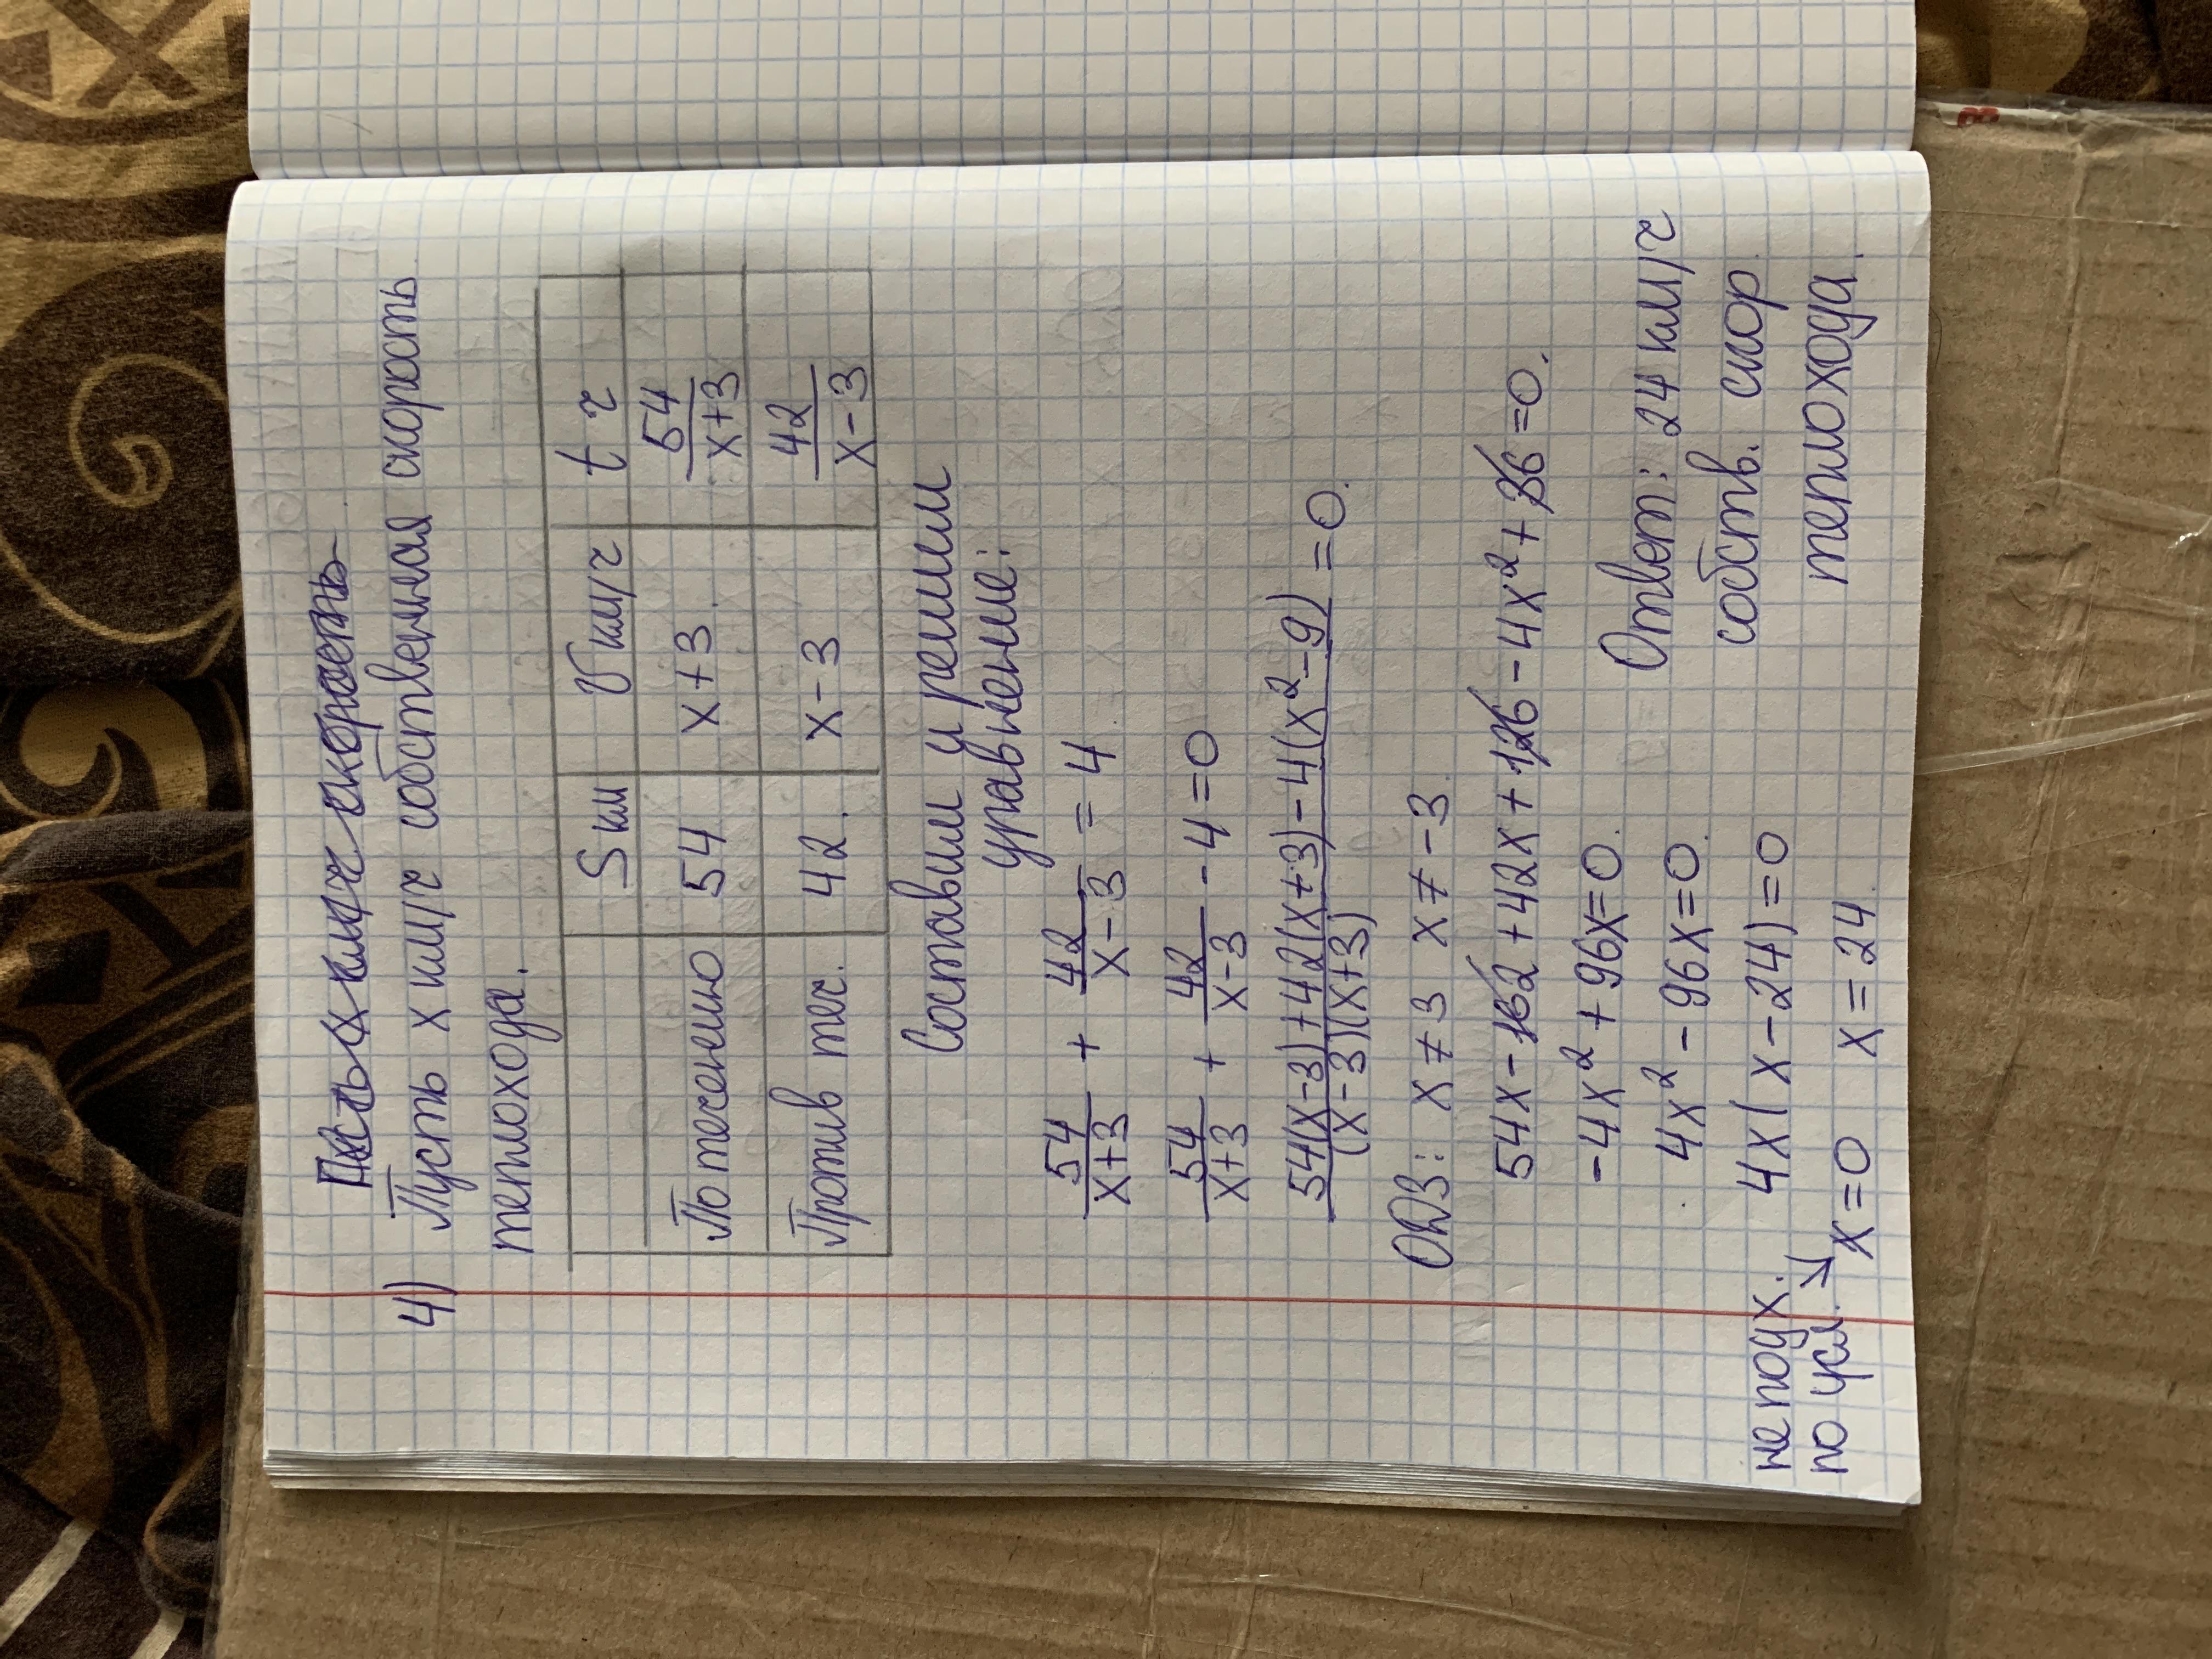 Пусть x км/ч скорость
4) Пусть x км/ч собственная скорость
теплохода.
S км V км/ч t ч
По течению 54 x+3 54/(x+3)
Против теч. 42. x-3 42/(x-3)
Составим и решим
уравнение:
54/(x+3) + 42/(x-3) = 4
54/(x+3) + 42/(x-3) - 4 = 0
(54(x-3)+42(x+3)-4(x²-9))/((x-3)(x+3)) = 0.
ОДЗ: x≠3 x≠-3
54x-162+42x+126-4x²+36=0.
-4x²+96x=0.
4x²-96x=0.
4x(x-24)=0
не подх.
по усл. ↘
x=0 x=24.
Ответ: 24 км/ч
собств. скор.
теплохода.